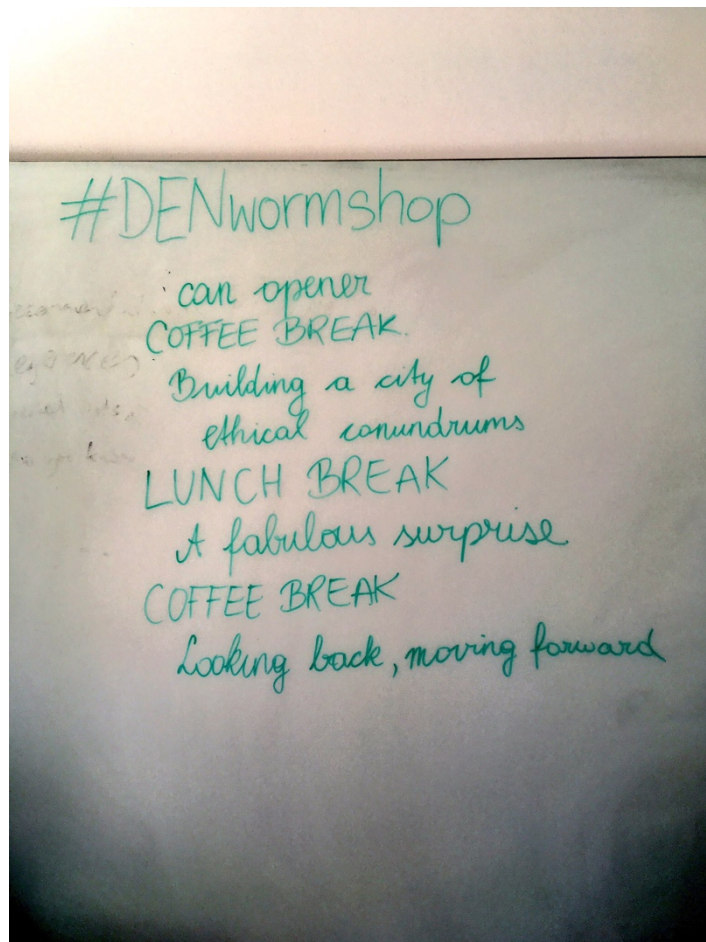 #DENwormshop
can opener
COFFEE BREAK.
Building a city of
ethical conundrums
LUNCH BREAK
A fabulous surprise
COFFEE BREAK
Looking back, moving forward